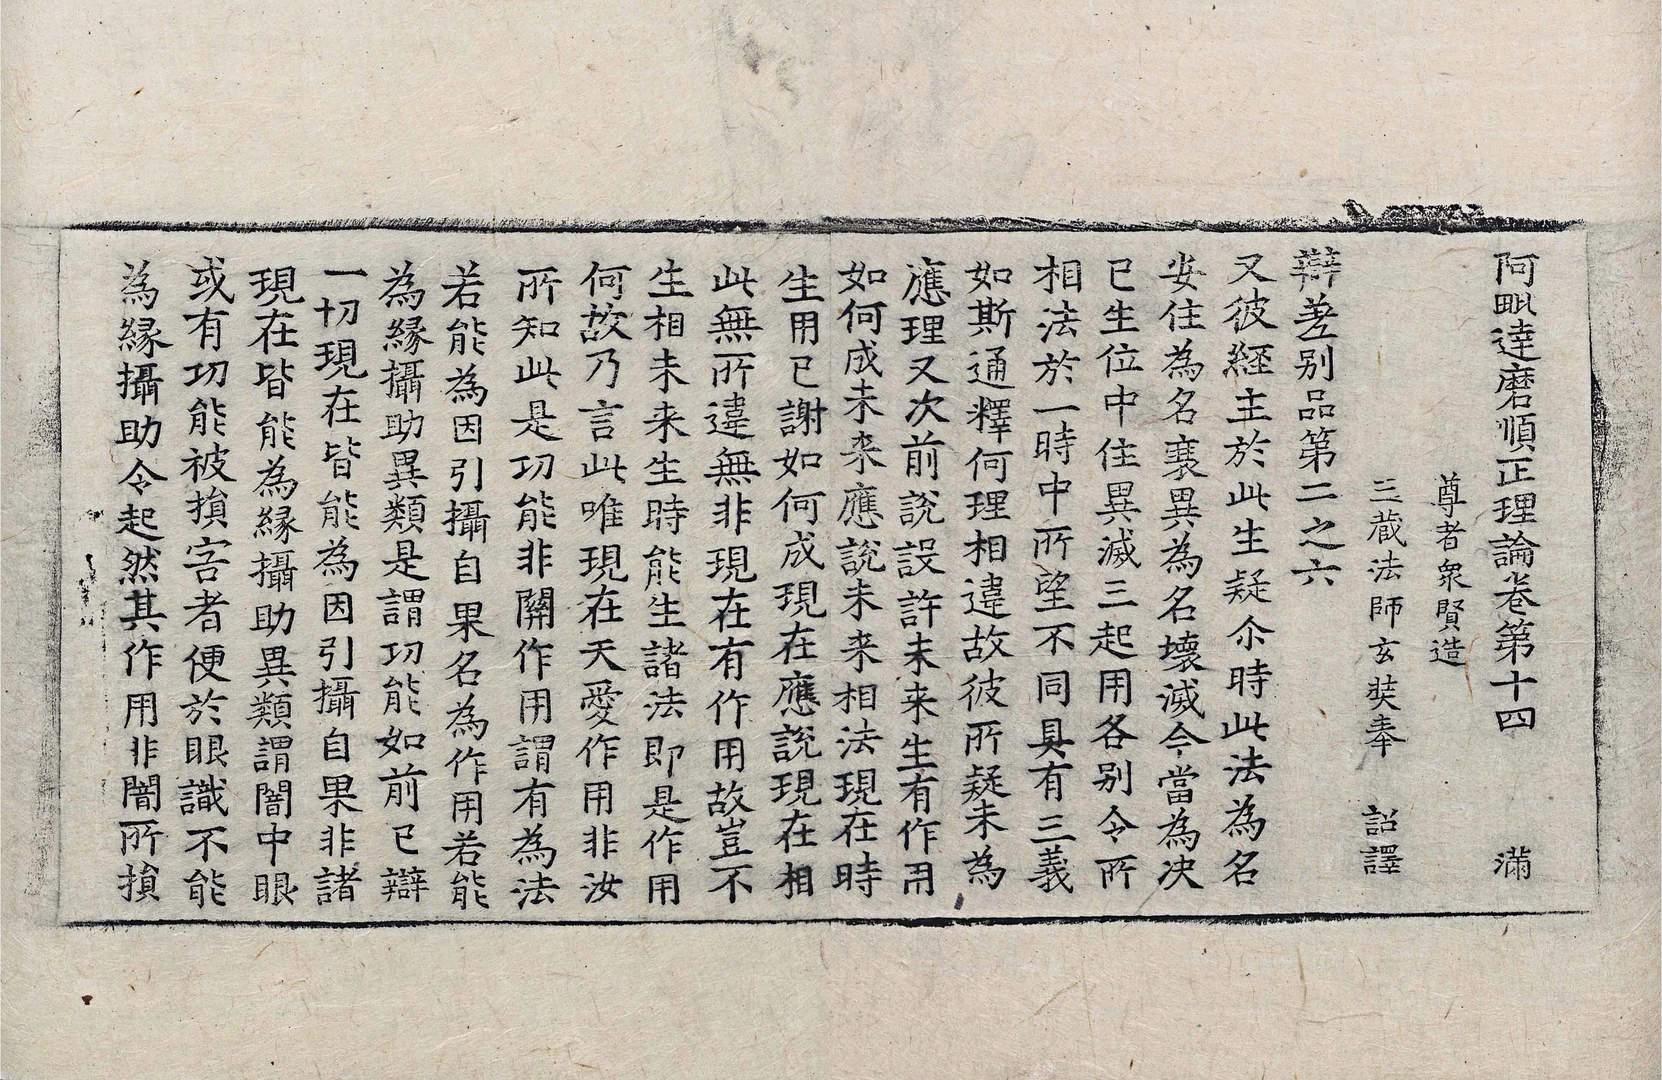 阿毗達磨順正理論卷第十四　滿
尊者衆賢造
三藏法師玄奘奉　詔譯
辯差别品第二之六
又彼經主於此生疑尒時此法為名
安住為名衰異為名壞滅今當為决
已生位中住異滅三起用各别令所
相法於一時中所望不同具有三義
如斯通釋何理相違故彼所疑未為
應理又次前說設許未来生有作用
如何成未来應說未来相法現在時
生用已謝如何成現在應說現在相
此無所違無非現在有作用故豈不
生相未来生時能生諸法即是作用
何故乃言此唯現在天愛作用非汝
所知此是功能非關作用謂有為法
若能為因引攝自果名為作用若能
為緣攝助異類是謂功能如前已辯
一切現在皆能為因引攝自果非諸
現在皆能為緣攝助異類謂闇中眼
或有功能被損害者便於眼識不能
為緣攝助令起然其作用非闇所損